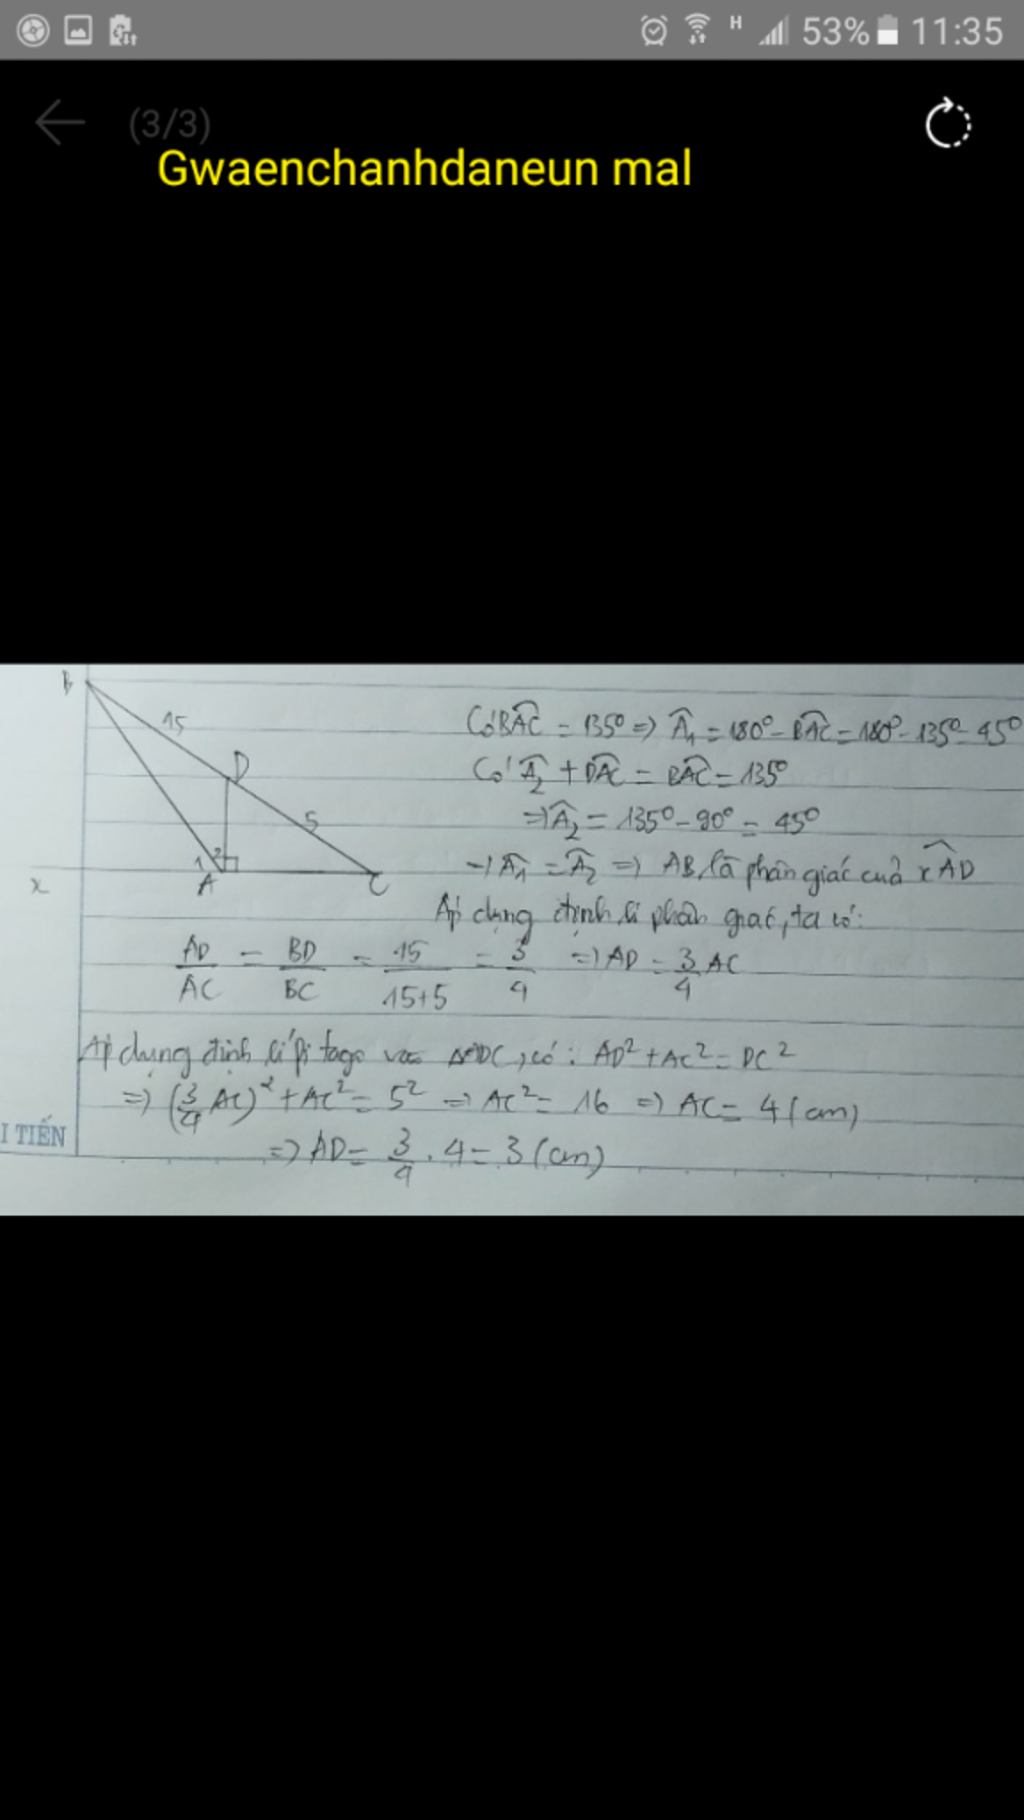 53% 11:35
(3/3)
Gwaenchanhdaneun mal
B
15
D
5
1 2
x A C
Có BAC = 135° => A₁ = 180° - BAC = 180° - 135° = 45°
Có A₂ + DAC = BAC = 135°
=> A₂ = 135° - 90° = 45°
=> A₁ = A₂ => AB là phân giác của xAD
Áp dụng định lí phân giác, ta có:
AD/AC = BD/BC = 15/15+5 = 3/4 => AD = 3/4 AC
Áp dụng định lí pi tago vào ΔADC, có: AD² + AC² = DC²
=> (3/4 AC)² + AC² = 5² => AC² = 16 => AC = 4 (cm)
I TIẾN
=> AD = 3/4 . 4 = 3 (cm)